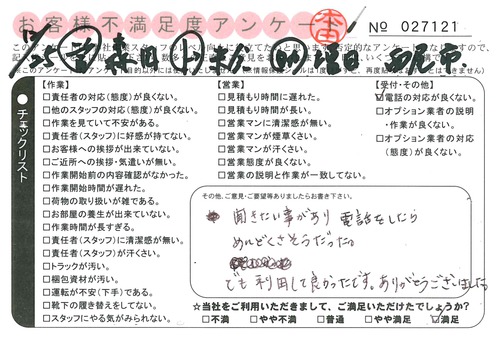 お客様不満足度アンケート
No 027121
チェックリスト
【作業】
□責任者の対応(態度)が良くない。
□他のスタッフの対応(態度)が良くない。
□作業を見ていて不安がある。
□責任者(スタッフ)に好感が持てない。
□お客様への挨拶が出来ていない。
□ご近所への挨拶・気遣いが無い。
□作業開始前の内容確認がなかった。
□作業開始時間が遅れた。
□荷物の取り扱いが雑である。
□お部屋の養生が出来ていない。
□作業時間が長すぎる。
□責任者(スタッフ)に清潔感が無い。
□責任者(スタッフ)が汗くさい。
□トラックが汚い。
□梱包資材が汚い。
□運転が不安(下手)である。
□靴下の履き替えをしてない。
□スタッフにやる気がみられない。
【営業】
□見積もり時間に遅れた。
□見積もり時間が長い。
□営業マンに清潔感が無い。
□営業マンが煙草くさい。
□営業マンが汗くさい。
□営業態度が良くない。
□営業の説明と作業が一致してない。
【受付・その他】
☑電話の対応が良くない。
□オプション業者の説明
・作業が良くない。
□オプション業者の対応
(態度)が良くない。
その他、ご意見・ご要望等ありましたらお書き下さい。
聞きたい事があり 電話をしたら
めんどくさそうだった。
でも利用して良かったです。ありがとうございました
☆当社をご利用いただきまして、ご満足いただけたでしょうか?
□不満 □やや不満 □普通 □やや満足 ☑満足